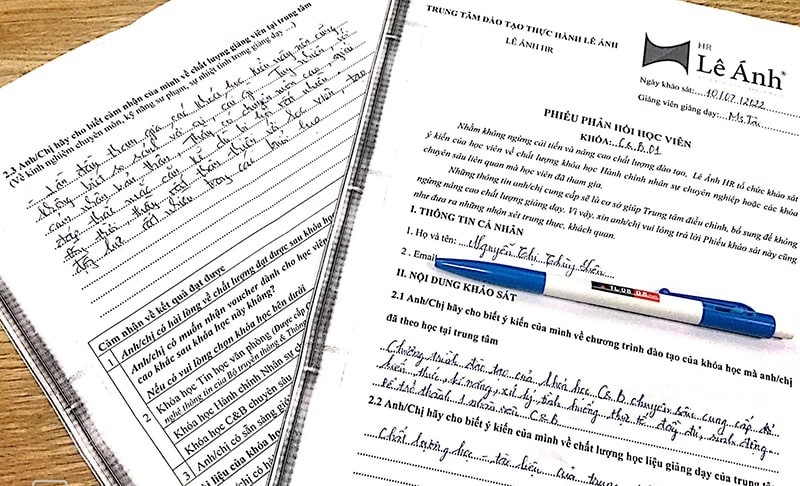 TRUNG TÂM ĐÀO TẠO THỰC HÀNH LÊ ÁNH
LÊ ÁNH HR
HR
Lê Ánh®
Ngày khảo sát: 10/07/2022
Giảng viên giảng dạy: Ms.
PHIẾU PHẢN HỒI HỌC VIÊN
KHÓA: C&B.01
Nhằm không ngừng cải tiến và nâng cao chất lượng đào tạo, Lê Ánh HR tổ chức khảo sát
ý kiến của học viên về chất lượng khóa học Hành chính nhân sự chuyên nghiệp hoặc các khóa
chuyên sâu liên quan mà học viên đã tham gia.
Những thông tin anh/chị cung cấp sẽ là cơ sở giúp Trung tâm điều chỉnh, bổ sung để không
ngừng nâng cao chất lượng giảng dạy. Vì vậy, xin anh/chị vui lòng trả lời Phiếu khảo sát này cũng
như đưa ra những nhận xét trung thực, khách quan.
I. THÔNG TIN CÁ NHÂN
1. Họ và tên: Nguyễn Thị Thùy
2. Email
II. NỘI DUNG KHẢO SÁT
2.1 Anh/Chị hãy cho biết ý kiến của mình về chương trình đào tạo của khóa học mà anh/chị
đã theo học tại trung tâm
Chương trình đào tạo của khóa học C&B chuyên sâu cung cấp đủ
kiến thức, kĩ năng, xử lý tình huống thực tế đầy đủ, sinh động
để trở thành 1 nhân viên C&B
2.2 Anh/Chị hãy cho biết ý kiến của mình về chất lượng học liệu giảng dạy của trung
Chất lượng học tài liệu của trung
2.3 Anh/Chị hãy cho biết cảm nhận của mình về chất lượng giảng viên tại trung tâm
(Về kinh nghiệm chuyên môn, kỹ năng sư phạm, sự nhiệt tình trong giảng dạy ...)
- Lần đầu tham gia khóa học kiểu này nên cũng
không biết so sánh với ai, cái gì. Tuy nhiên, về
cảm nhận bản thân, Thầy có chuyên môn cao, giải
đáp thắc mắc
thầy rất thân thiện với học viên, tạo
rất nhiều trong các buổi học
Cảm nhận về kết quả đạt được
1 Anh/chị có hài lòng về chất lượng đạt được sau khóa học
Anh/chị có muốn nhận voucher dành cho học viên
cao khác sau khóa học này không?
Nếu có vui lòng chọn khóa học bên dưới
2 Khóa học Tin học văn phòng (Được cấp
nghệ thông tin của Bộ truyền thông & Thông
Khóa học Hành chính Nhân sự
Khóa học C&B chuyên sâu
3 Anh/chị có sẵn sàng
liệu của khóa